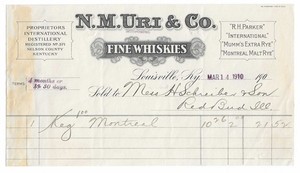 N. M. URI & Co.
PROPRIETORS
INTERNATIONAL
DISTILLERY
REGISTERED Nº 271
NELSON COUNTY
KENTUCKY
FINE WHISKIES
"R.H. PARKER"
"INTERNATIONAL"
"MUMM'S EXTRA RYE"
"MONTREAL MALT RYE"
4 months or
30 days.
Louisville, Ky. MAR 14 1910 190
Sold to Mess H Schreiber & Son
Red Bud Ill.
1 Keg Montreal 10 26 2 00 21 52